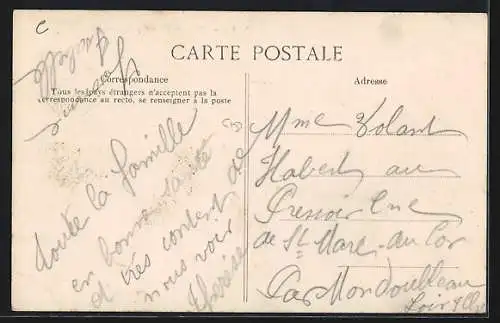 C
CARTE POSTALE
Correspondance
Tous les pays étrangers n'acceptent pas la
correspondance au recto, se renseigner à la poste
Adresse
toute la famille
en bonne santé
et très content de
nous voir
Thérèse
Mme Volant
Habert au
Pressoir
de St Marc-du-Cor
Par Mondoubleau
Loir & Cher